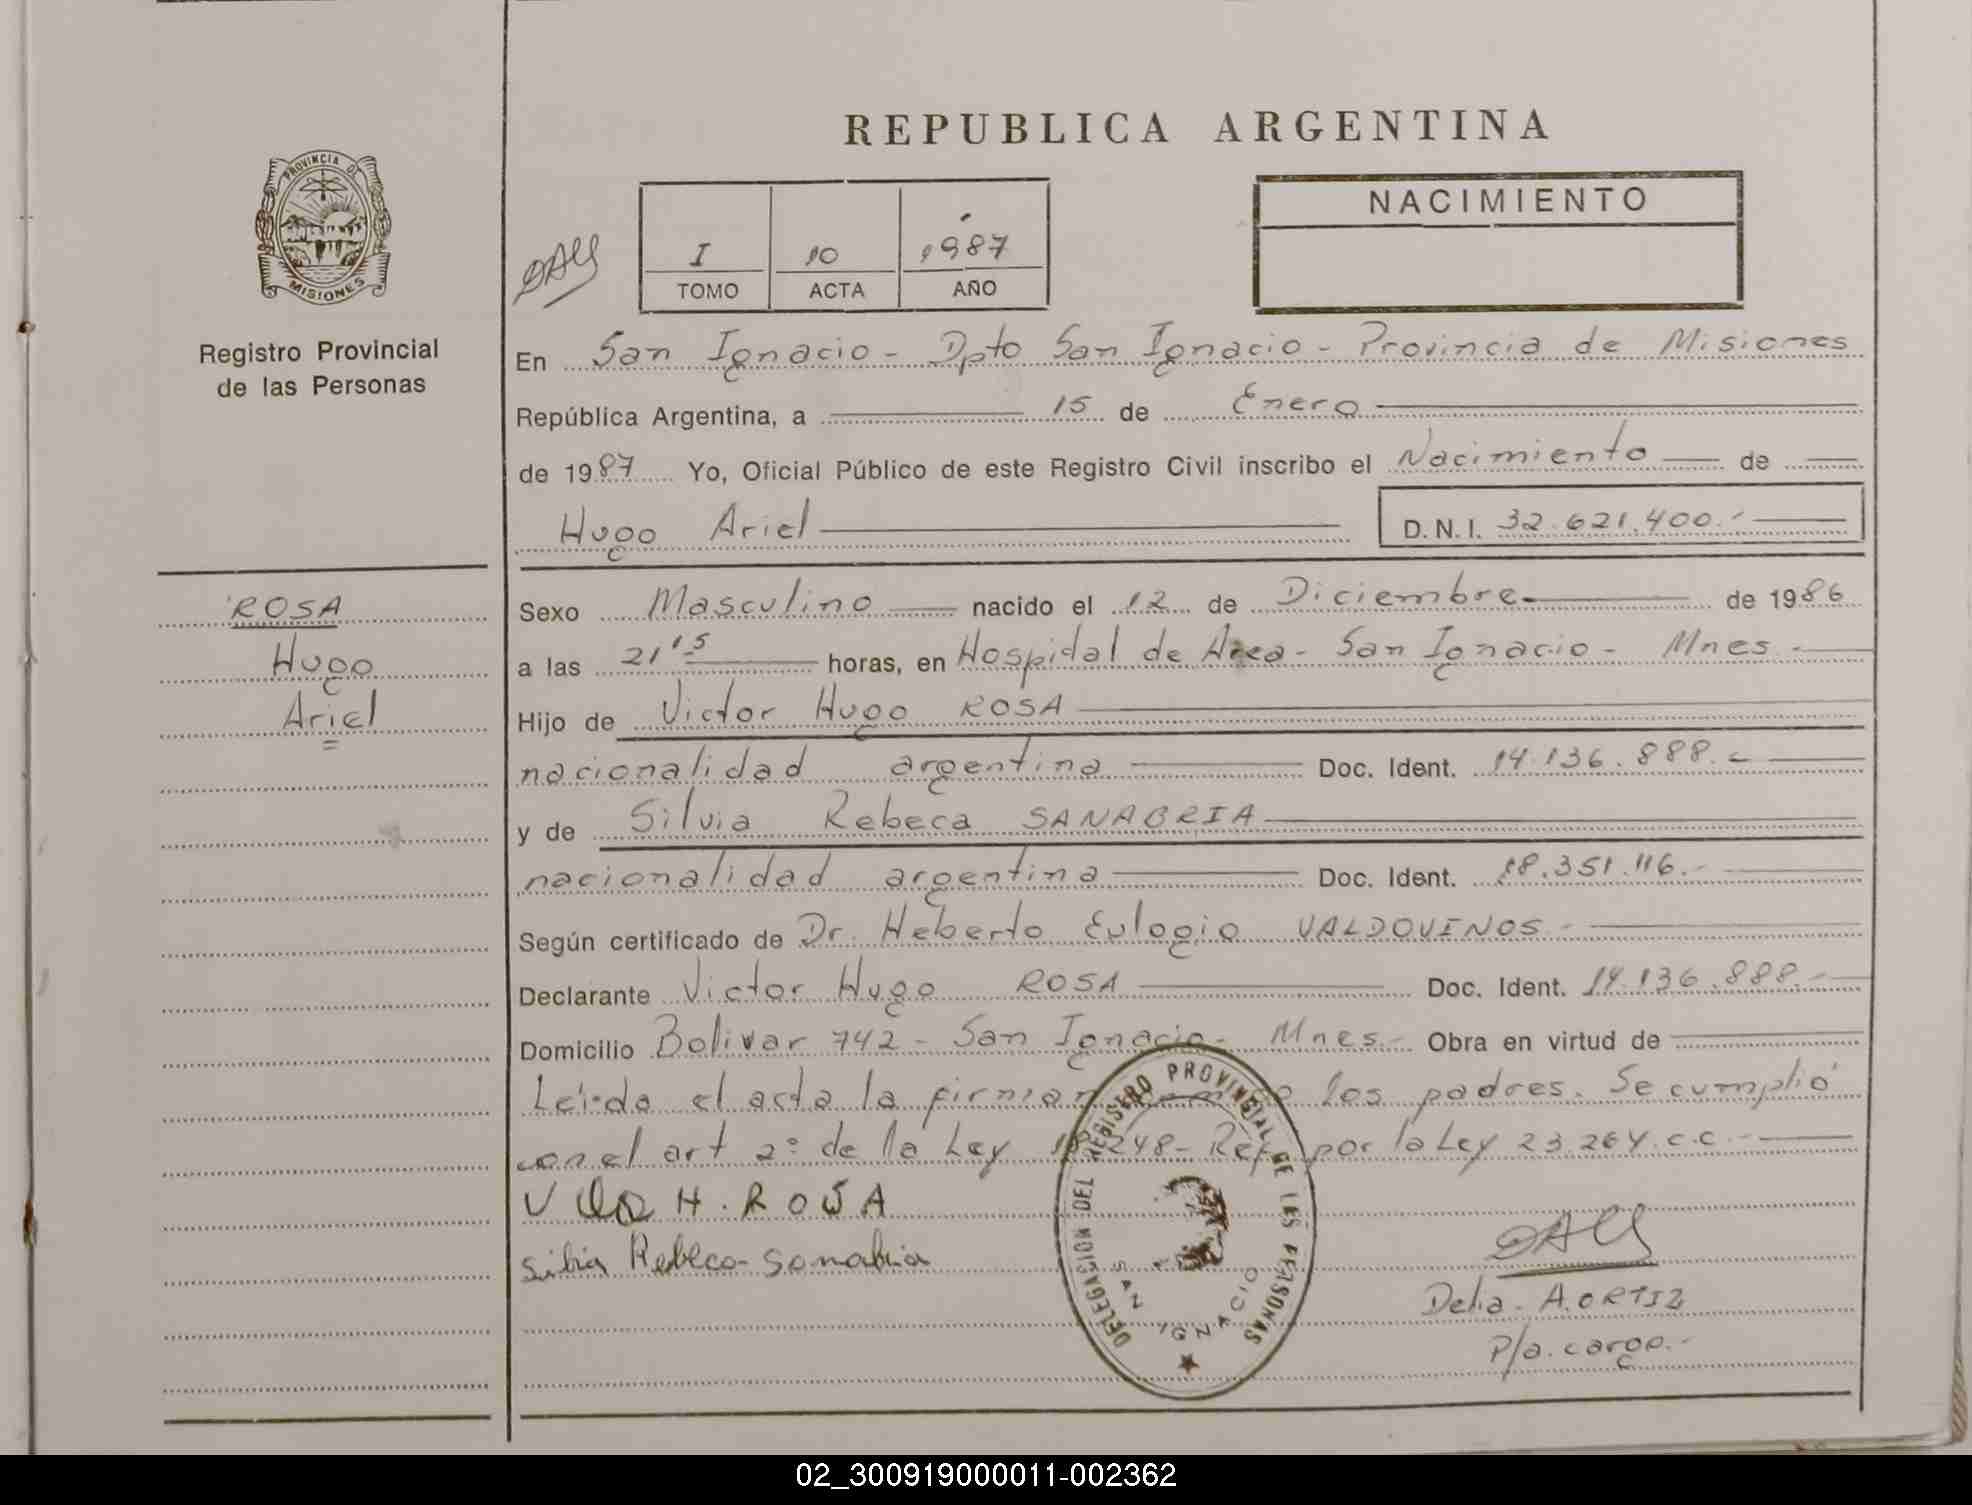 REPUBLICA ARGENTINA
PROVINCIA DE
MISIONES
Registro Provincial
de las Personas
I 10 1987
TOMO ACTA AÑO
NACIMIENTO
En San Ignacio - Dpto San Ignacio - Provincia de Misiones
República Argentina, a 15 de Enero
de 1987 Yo, Oficial Público de este Registro Civil inscribo el Nacimiento de
Hugo Ariel D.N.I. 32.621.400.-
ROSA
Hugo
Ariel
Sexo Masculino nacido el 12 de Diciembre de 1986
a las 21 15 horas, en Hospital de Area - San Ignacio - Mnes -
Hijo de Victor Hugo ROSA
nacionalidad argentina Doc. Ident. 14.136.888.-
y de Silvia Rebeca SANABRIA
nacionalidad argentina Doc. Ident. 18.351.116.-
Según certificado de Dr. Heberto Eulogio VALDOVINOS.-
Declarante Victor Hugo ROSA Doc. Ident. 14.136.888.-
Domicilio Bolivar 742 - San Ignacio - Mnes.- Obra en virtud de
Leida el acta la firman los padres. Se cumplió
con el art 2º de la Ley 18.248 - Ref por la Ley 23.264.c.c.-
H. ROSA
Silvia Rebeca Sanabria
DELEGACION DEL REGISTRO PROVINCIAL DE LAS PERSONAS
SAN IGNACIO
Delia A. ORTIZ
P/a. cargo.-
02_300919000011-002362